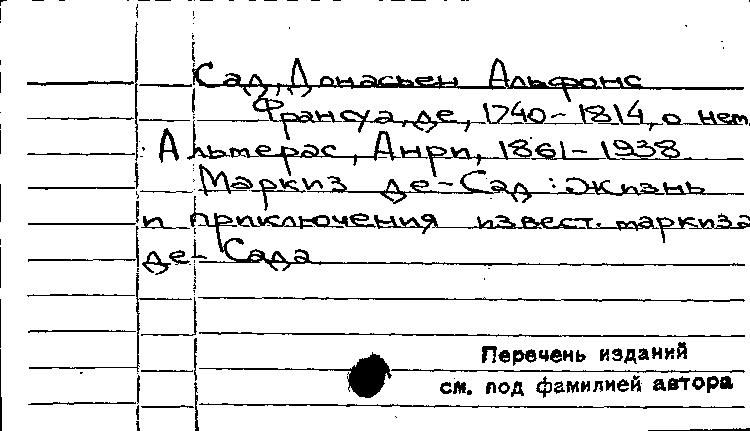 Сад, Донасьен Альфонс
Франсуа, де, 1740-1814, о нем
Альмерас, Анри, 1861-1938
Маркиз де-Сад: Жизнь
и приключения извест. маркиза
де-Сада
Перечень изданий
см. под фамилией автора